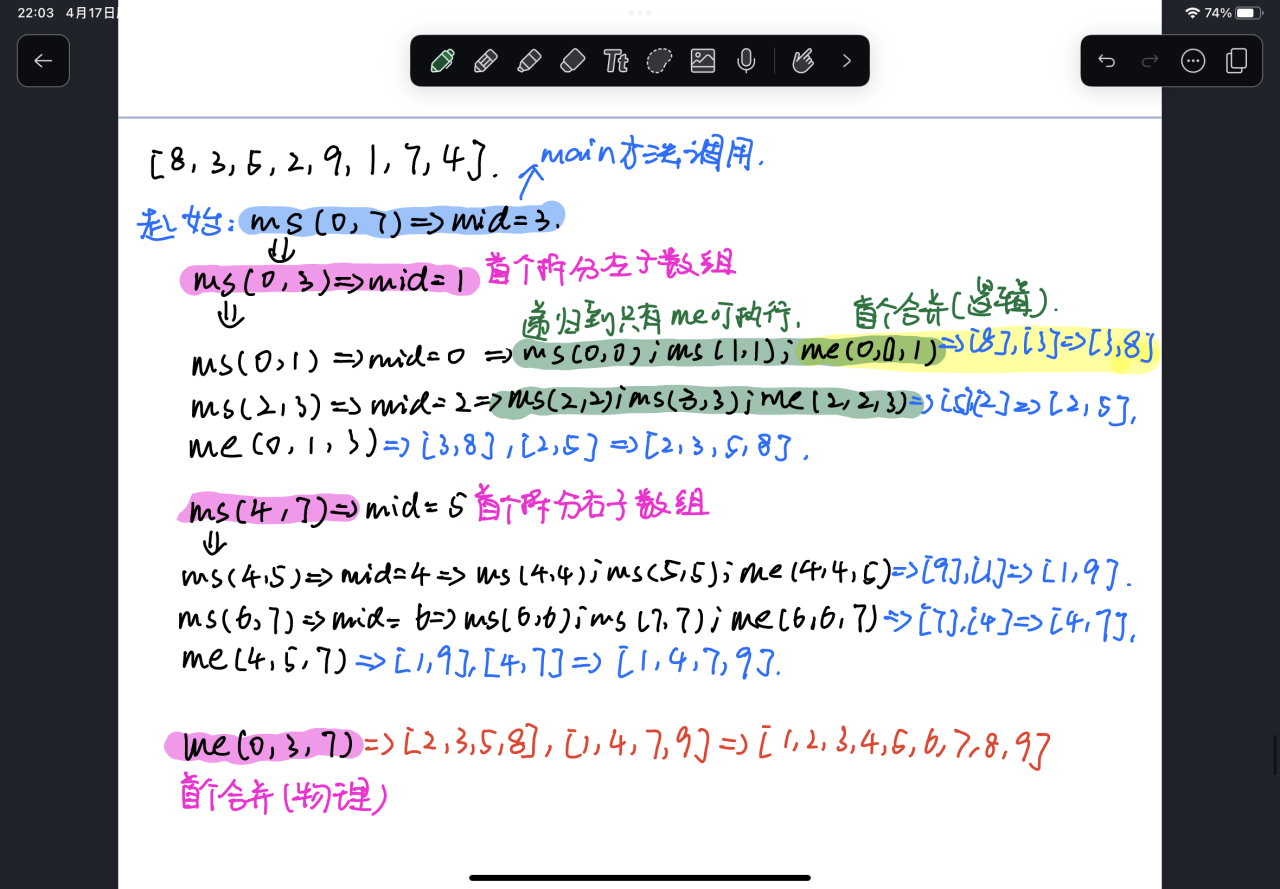 22:03 4月17日
74%
Tt
[8, 3, 5, 2, 9, 1, 7, 4].
main方法调用.
起始: ms(0, 7) => mid=3.
ms(0, 3) => mid=1 首个拆分左子数组
递归到只有me可执行. 首个合并(逻辑).
ms(0,1) => mid=0 => ms(0,0); ms(1,1); me(0,0,1) => [8],[3] => [3,8]
ms(2,3) => mid=2 => ms(2,2); ms(3,3); me(2,2,3) => [5],[2] => [2,5],
me(0,1,3) => [3,8],[2,5] => [2,3,5,8].
ms(4,7) => mid=5 首个拆分右子数组
ms(4,5) => mid=4 => ms(4,4); ms(5,5); me(4,4,5) => [9],[1] => [1,9].
ms(6,7) => mid=6 => ms(6,6); ms(7,7); me(6,6,7) => [7],[4] => [4,7],
me(4,5,7) => [1,9],[4,7] => [1,4,7,9].
me(0,3,7) => [2,3,5,8],[1,4,7,9] => [1,2,3,4,5,6,7,8,9]
首个合并(物理)